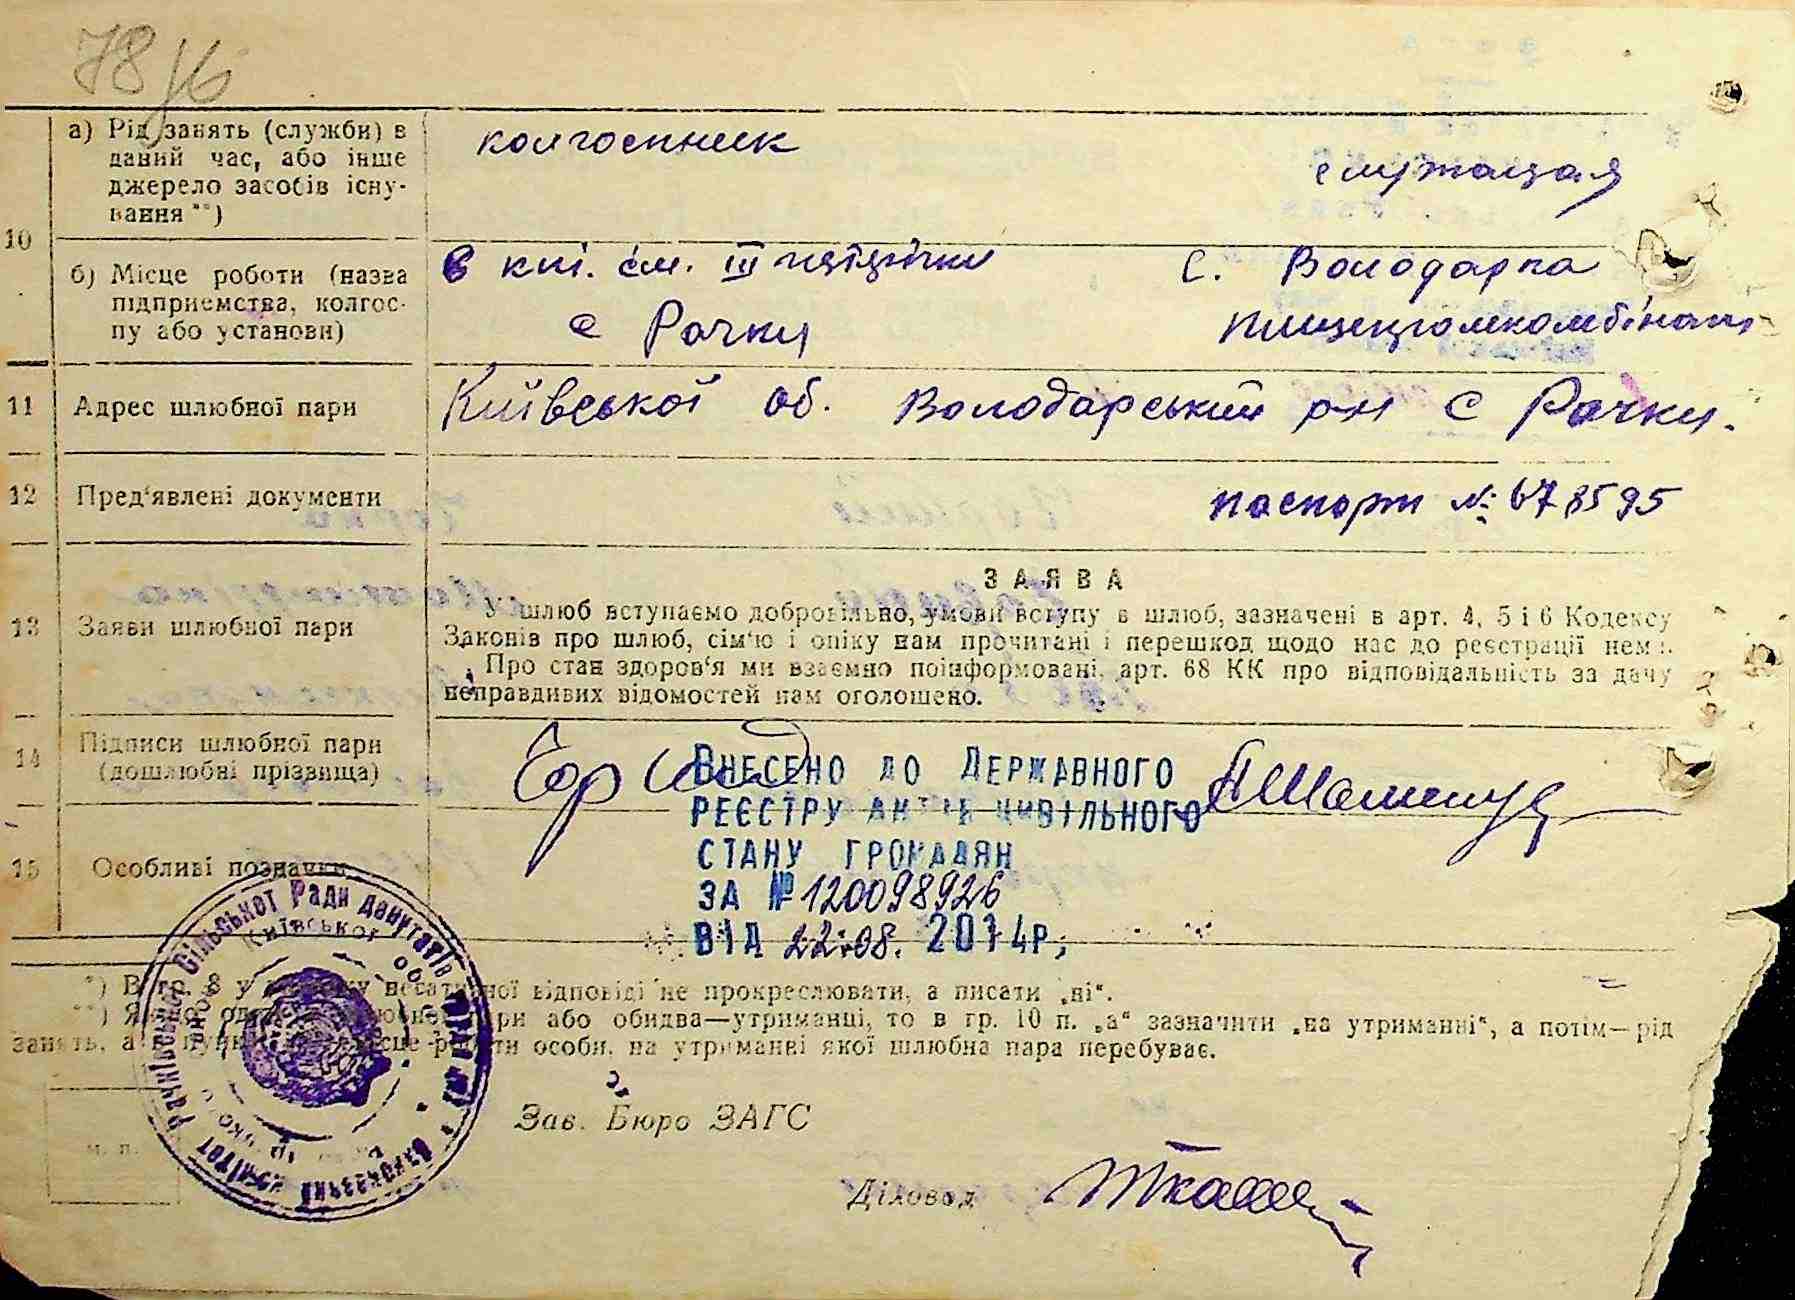 78
10
а) Рід занять (служби) в
даний час, або інше
джерело засобів існу-
вання **)
колгоспник
служащая
б) Місце роботи (назва
підприємства, колгос-
пу або установи)
в кп. ім. III пятірічки
с Рачки
с. Володарка
пищепромкомбінат
11 Адрес шлюбної пари
Київської об. Володарський р-н с Рачки.
12 Пред'явлені документи
паспорт №: 678595
13 Заяви шлюбної пари
ЗАЯВА
У шлюб вступаємо добровільно, умови вступу в шлюб, зазначені в арт. 4, 5 і 6 Кодексу
Законів про шлюб, сім'ю і опіку нам прочитані і перешкод щодо нас до реєстрації нема.
Про стан здоров'я ми взаємно поінформовані, арт. 68 КК про відповідальність за дачу
неправдивих відомостей нам оголошено.
14 Підписи шлюбної пари
(дошлюбні прізвища)
15 Особливі позначки
Внесено до Державного
реєстру актів цивільного
стану громадян
за № 120098926
від 22.08. 2014р,
*) В гр. 8 у випадку негативної відповіді не прокреслювати, а писати „ні“.
**) Якщо один з шлюбної пари або обидва—утриманці, то в гр. 10 п. „а“ зазначити „на утриманні“, а потім—рід
занять, а в пункті місце роботи особи, на утриманні якої шлюбна пара перебуває.
Зав. Бюро ЗАГС
м. п.
Діловод